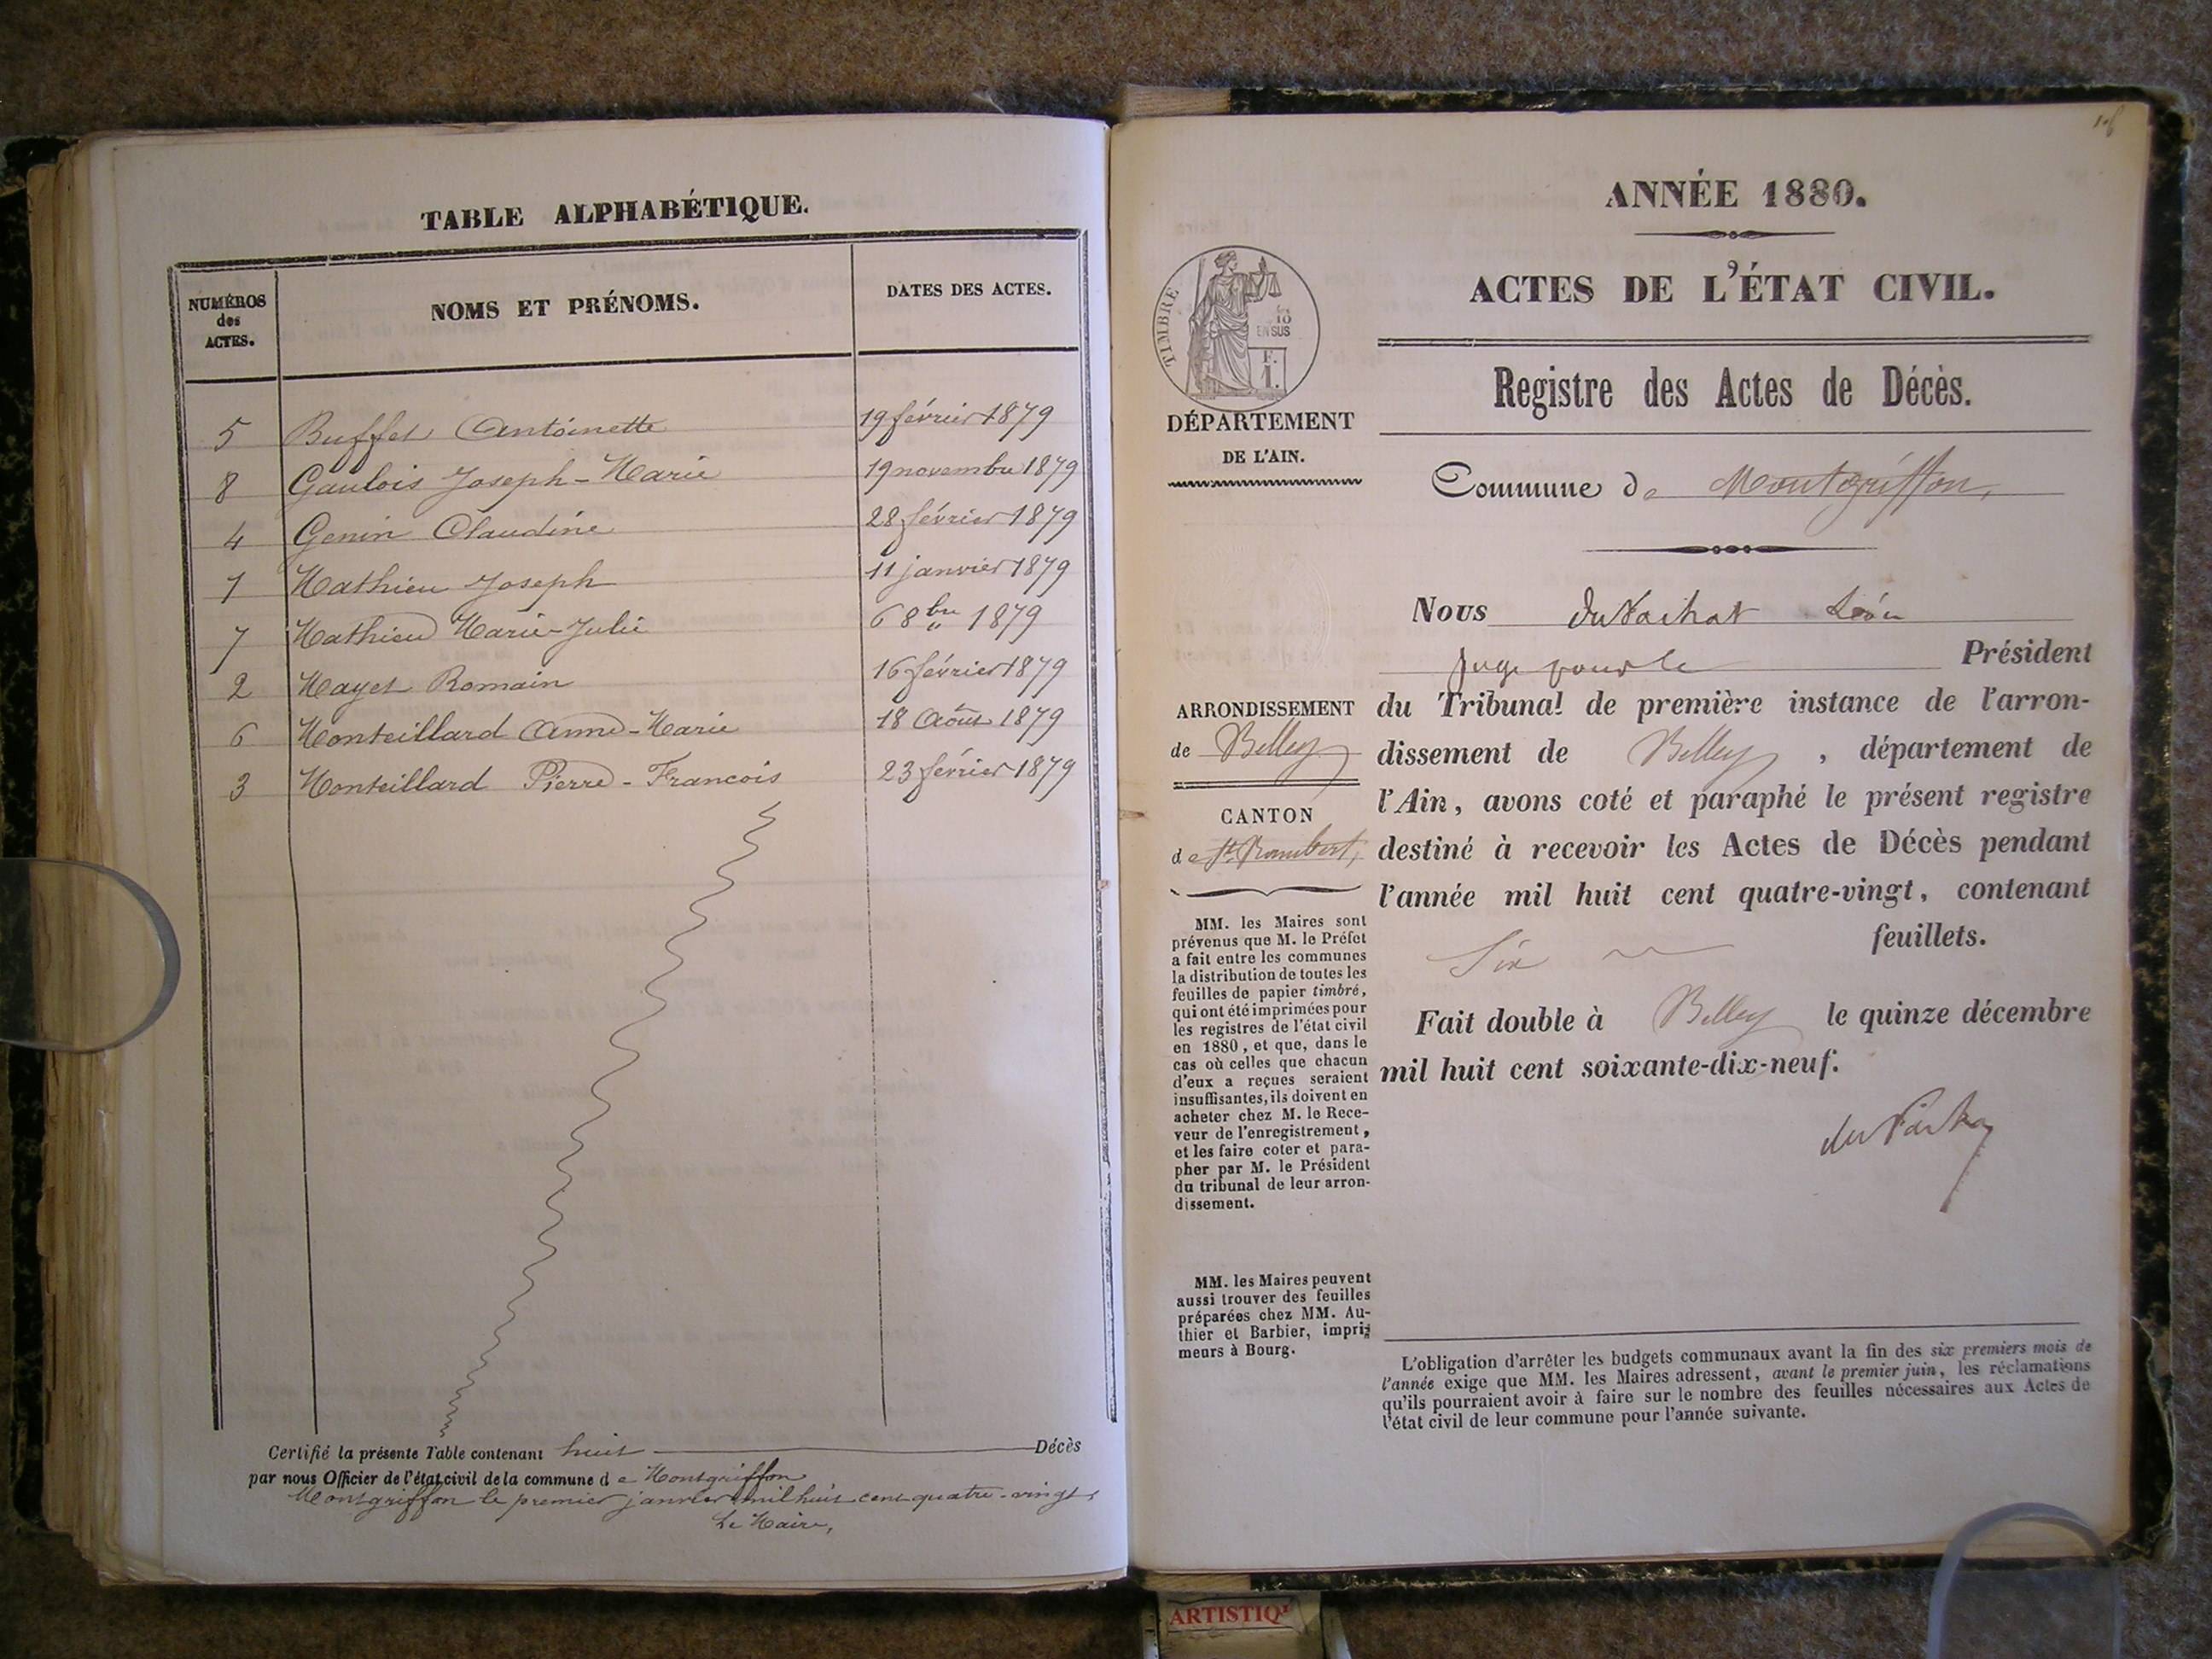 TABLE ALPHABÉTIQUE.
NUMÉROS
des
ACTES.
NOMS ET PRÉNOMS.
DATES DES ACTES.
5 Buffet Antoinette 19 février 1879
8 Gaulois Joseph-Marie 19 novembre 1879
4 Genin Claudine 28 février 1879
1 Mathieu Joseph 11 janvier 1879
7 Mathieu Marie-Julie 6 8bre 1879
2 Mayet Romain 16 février 1879
6 Monteillard Anne-Marie 18 Août 1879
3 Monteillard Pierre-Francois 23 février 1879
Certifié la présente Table contenant huit Décès
par nous Officier de l'état civil de la commune de Montgriffon
Montgriffon le premier janvier mil huit cent quatre-vingt,
Le Maire,
ANNÉE 1880.
ACTES DE L'ÉTAT CIVIL.
Registre des Actes de Décès.
TIMBRE
10
EN SUS
F.
1.
DÉPARTEMENT
DE L'AIN.
Commune de Montgriffon,
Nous du Vachat Léon
Juge pour le Président
du Tribunal de première instance de l'arron-
dissement de Belley, département de
l'Ain, avons coté et paraphé le présent registre
destiné à recevoir les Actes de Décès pendant
l'année mil huit cent quatre-vingt, contenant
Six feuillets.
Fait double à Belley le quinze décembre
mil huit cent soixante-dix-neuf.
du Vachat
ARRONDISSEMENT
de Belley
CANTON
de St Rambert,
MM. les Maires sont
prévenus que M. le Préfet
a fait entre les communes
la distribution de toutes les
feuilles de papier timbré,
qui ont été imprimées pour
les registres de l'état civil
en 1880, et que, dans le
cas où celles que chacun
d'eux a reçues seraient
insuffisantes, ils doivent en
acheter chez M. le Rece-
veur de l'enregistrement,
et les faire coter et para-
pher par M. le Président
du tribunal de leur arron-
dissement.
MM. les Maires peuvent
aussi trouver des feuilles
préparées chez MM. Au-
thier et Barbier, impri-
meurs à Bourg.
L'obligation d'arrêter les budgets communaux avant la fin des six premiers mois de
l'année exige que MM. les Maires adressent, avant le premier juin, les réclamations
qu'ils pourraient avoir à faire sur le nombre des feuilles nécessaires aux Actes de
l'état civil de leur commune pour l'année suivante.
ARTISTIQ